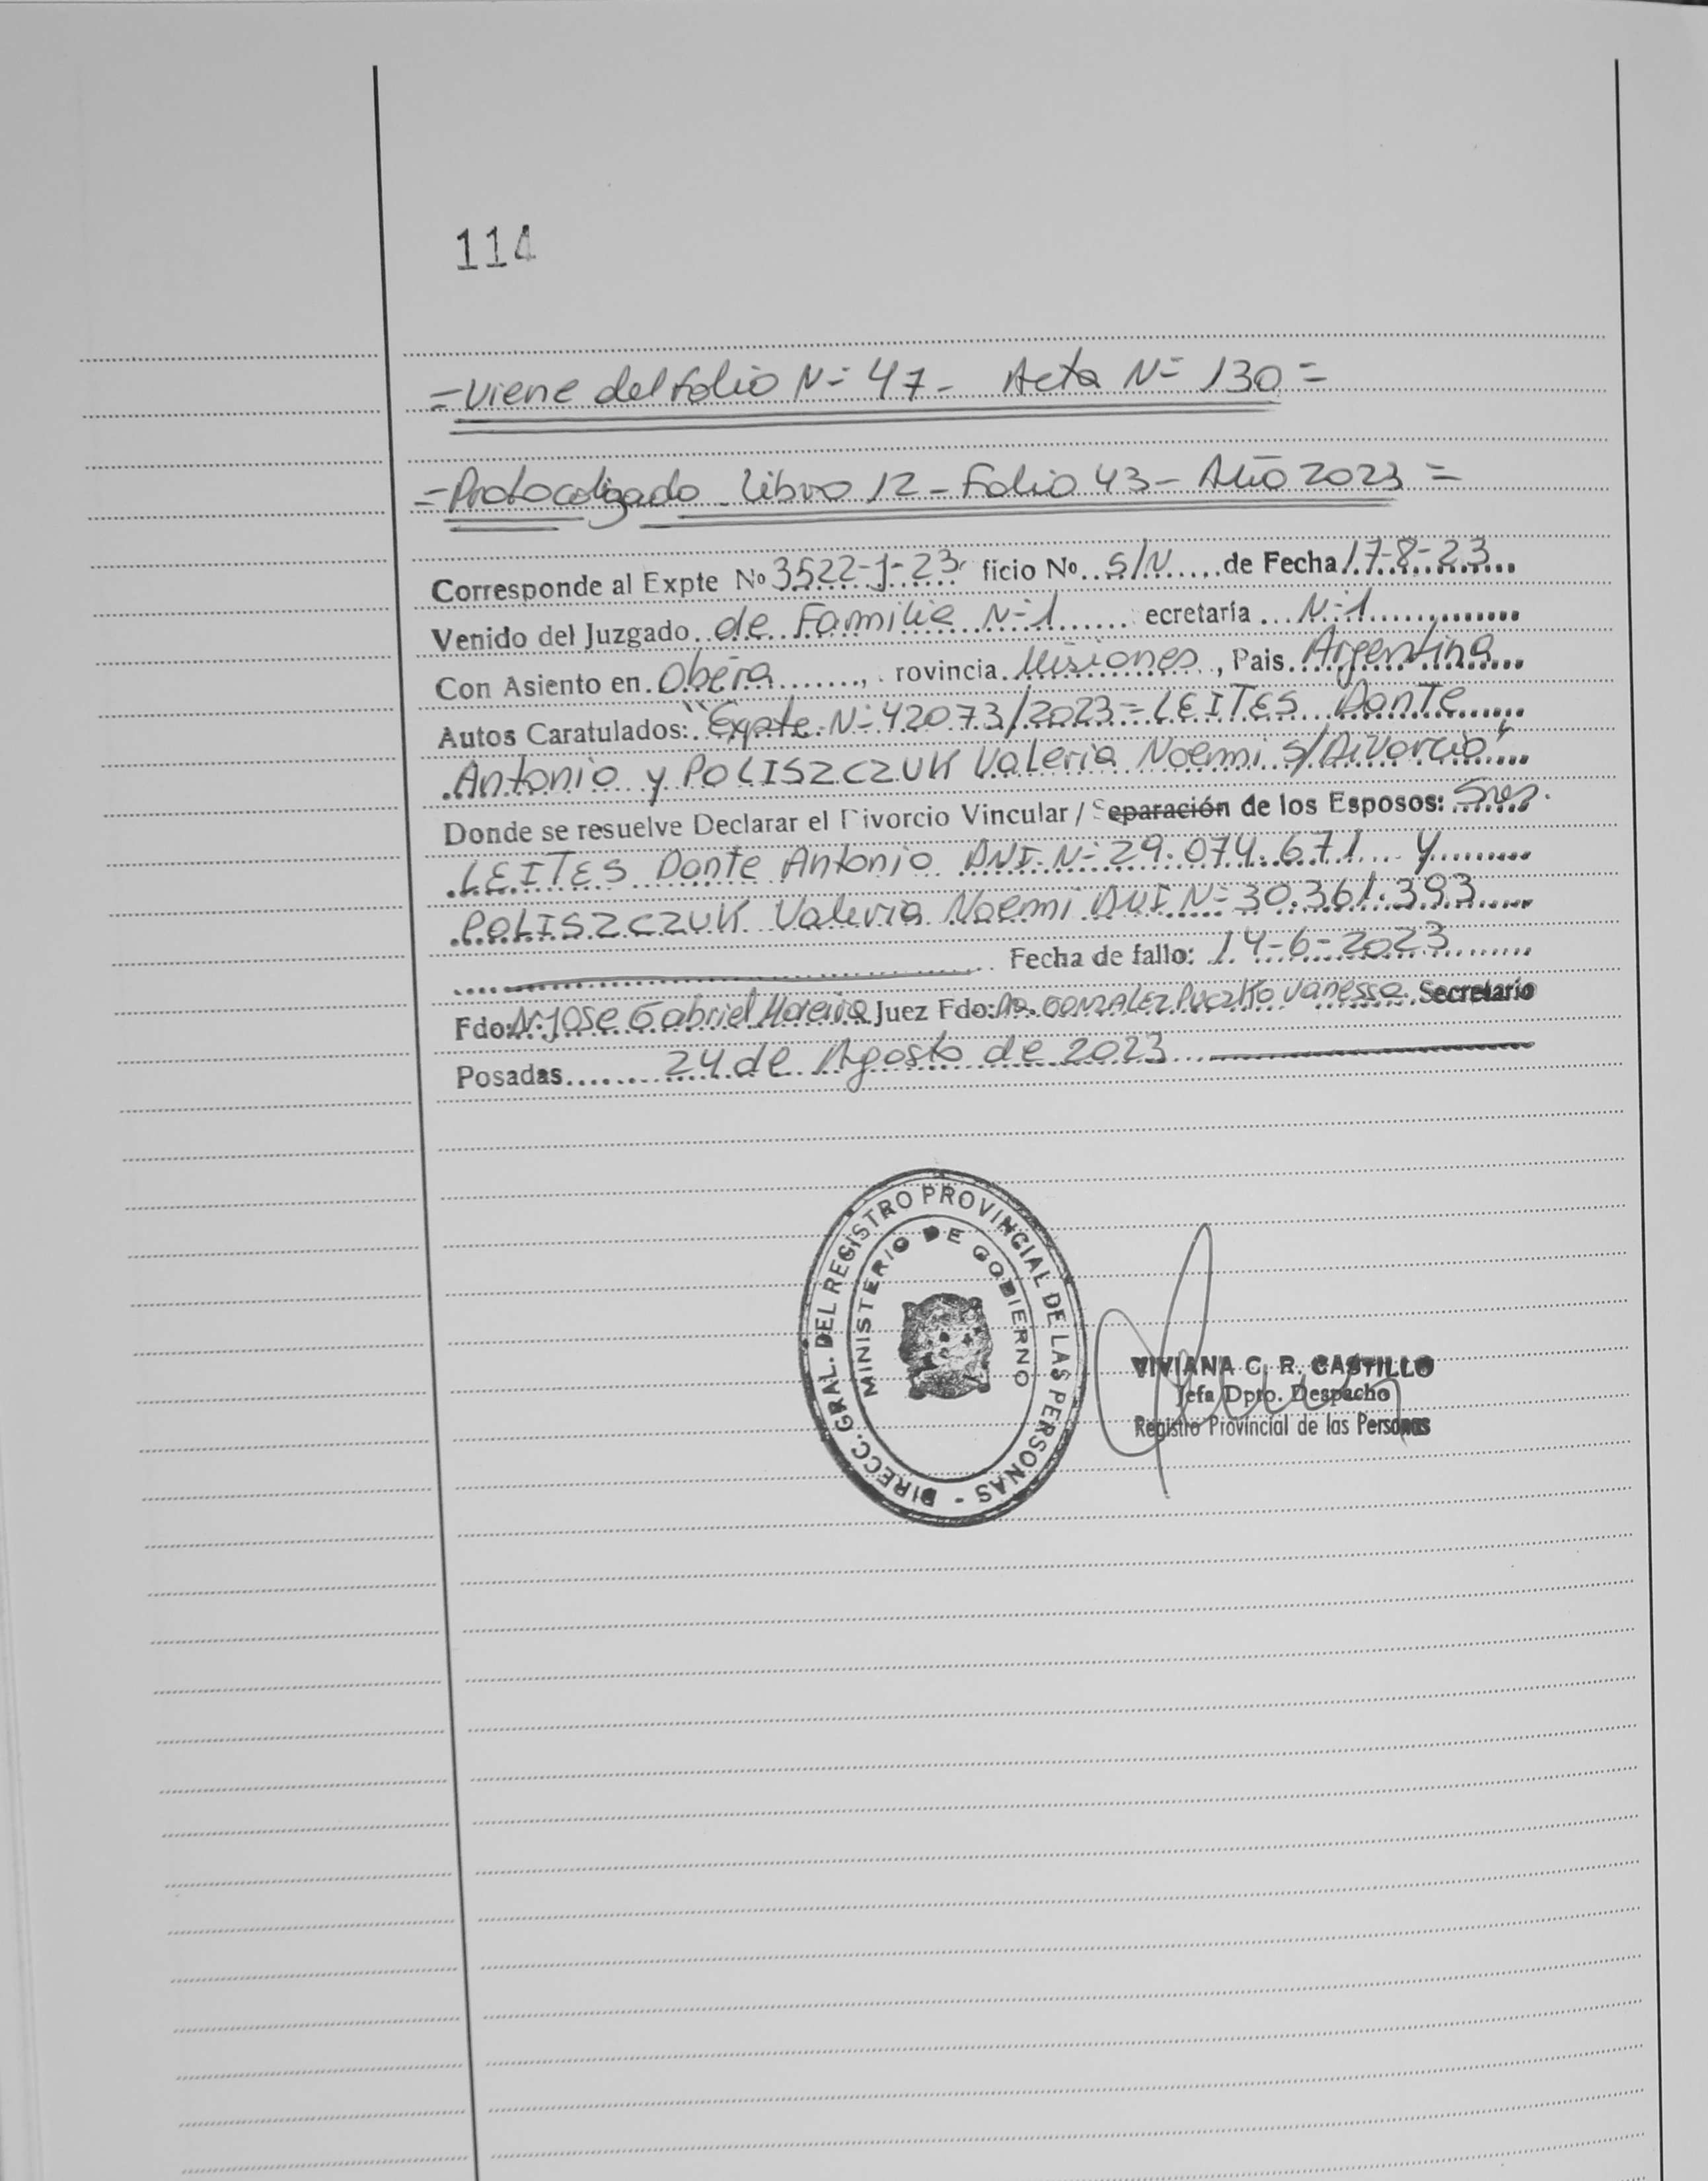 114
= Viene del folio N= 47 - Acta N= 130 =
= Protocolizado - Libro 12 - Folio 43 - Año 2023 =
Corresponde al Expte Nº 3522-J-23 ficio Nº S/N de Fecha 17-8-23
Venido del Juzgado de Familia N=1 ecretaría N=1
Con Asiento en Oberá , rovincia Misiones , Pais Argentina
Autos Caratulados: "Expte N=42073/2023= LEITES Dante
Antonio y POLISZCZUK Valeria Noemi S/Divorcio"
Donde se resuelve Declarar el Divorcio Vincular / Separación de los Esposos: Sres.
LEITES Dante Antonio DNI N= 29.074.671 y
POLISZCZUK Valeria Noemi DNI N= 30.361.393
Fecha de fallo: 14-6-2023
Fdo: Dr. Jose Gabriel Moreira Juez Fdo: Dra. GONZALEZ Puczko Vanessa Secretario
Posadas 24 de Agosto de 2023
DIRECC. GRAL. DEL REGISTRO PROVINCIAL DE LAS PERSONAS -
MINISTERIO DE GOBIERNO
VIVIANA C. R. CASTILLO
Jefa Dpto. Despacho
Registro Provincial de las Personas